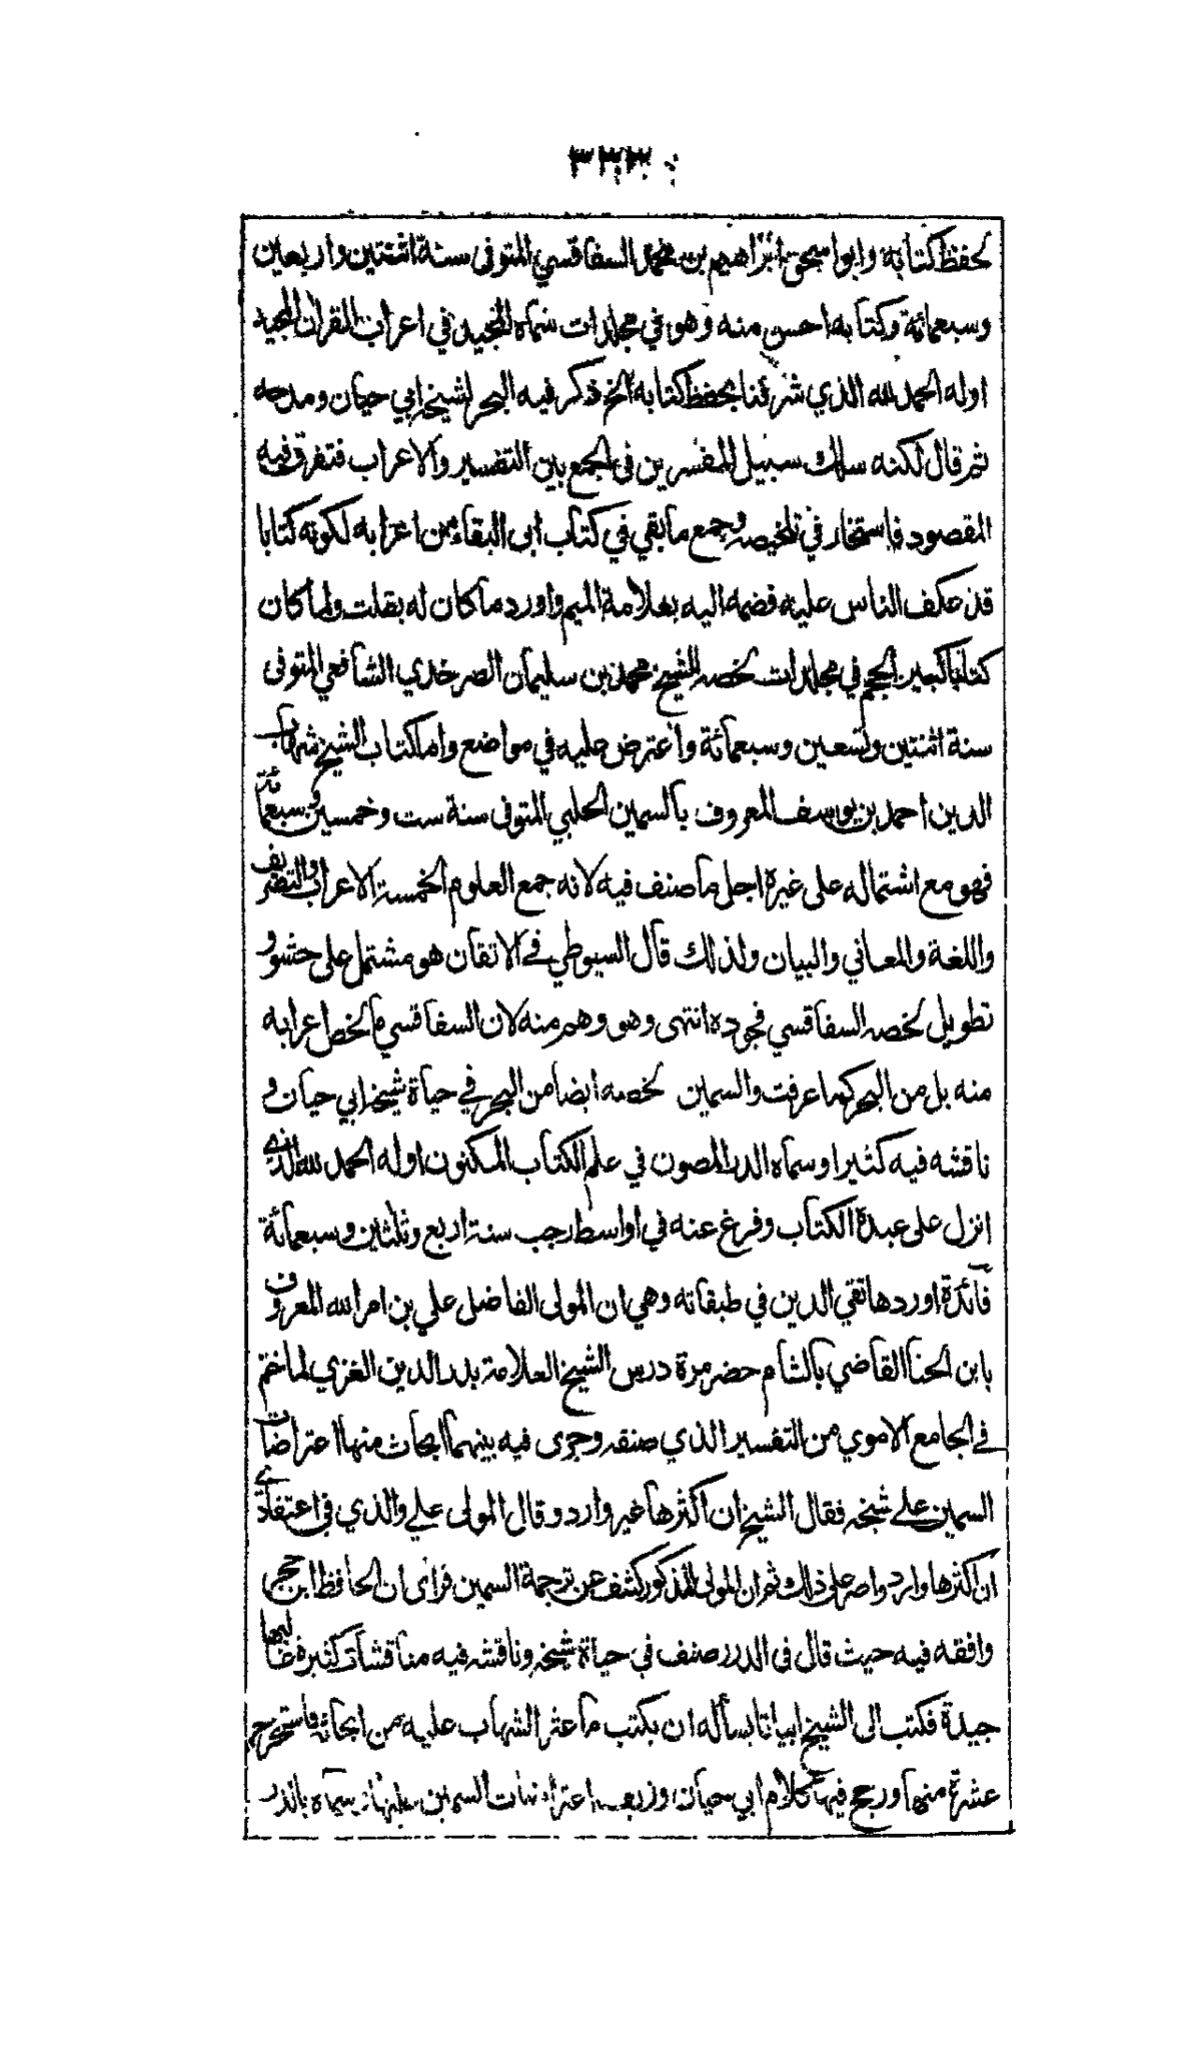 ٣٣٣
لحفظ كتابه وابو اسحق ابراهيم بن محمد السفاقسي المتوفى سنة اثنتين واربعين
وسبعمائة وكتابه احسن منه وهو في مجلدات سماه المجيد في اعراب القران المجيد
اوله الحمد لله الذي شرفنا بحفظ كتابه الخ ذكر فيه البحر لشيخه ابي حيان ومدحه
ثم قال لكنه سلك سبيل المفسرين فى الجمع بين التفسير والاعراب فتفرق فيه
المقصود فاستخار في تلخيصه وجمع ما بقي في كتاب ابى البقاء من اعرابه لكونه كتابا
قد عكف الناس عليه فضمه اليه بعلامة الميم واورد ما كان له بقلت ولما كان
كتابا كبير الحجم في مجلدات لخصه الشيخ محمد بن سليمان الصرخدي الشافعي المتوفى
سنة اثنتين وتسعين وسبعمائة واعترض عليه في مواضع واما كتاب الشيخ شهاب
الدين احمد بن يوسف المعروف بالسمين الحلبي المتوفى سنة ست وخمسين وسبعمائة
فهو مع اشتماله على غيره اجل ما صنف فيه لانه جمع العلوم الخمسة الاعراب والتصريف
واللغة والمعاني والبيان ولذلك قال السيوطي في الاتقان هو مشتمل على حشو و
تطويل لخصه السفاقسي فجوده انتهى وهو وهم منه لان السفاقسي ما لخص اعرابه
منه بل من البحر كما عرفت والسمين لخصه ايضا من البحر في حياة شيخه ابي حيان و
ناقشه فيه كثيرا وسماه الدر المصون في علم الكتاب المكنون اوله الحمد لله الذي
انزل على عبده الكتاب وفرغ عنه في اواسط رجب سنة اربع وثلثين وسبعمائة
فائدة اوردها تقي الدين في طبقاته وهي ان المولى الفاضل علي بن امر الله المعروف
بابن الحنا القاضي بالشام حضر مرة درس الشيخ العلامة بدر الدين الغزي لما ختم
في الجامع الاموي من التفسير الذي صنفه وجرى فيه بينهما ابحاث منها اعتراضات
السمين على شيخه فقال الشيخ ان اكثرها غير وارد وقال المولى علي والذي في اعتقادي
ان اكثرها وارد واصر على ذلك ثم ان المولى المذكور كشف عن ترجمة السمين فرأى ان الحافظ ابن حجر
وافقه فيه حيث قال فى الدرر صنف في حياة شيخه وناقشه فيه مناقشات كثيرة غالبها
جيدة فكتب الى الشيخ ابياتا يسأله ان يكتب ما عثر الشهاب عليه من ابحاثه فاستخرج
عشرة منها ورجح فيها كلام ابي حيان وزيف اعتراضات السمين عليها وسماه بالدر